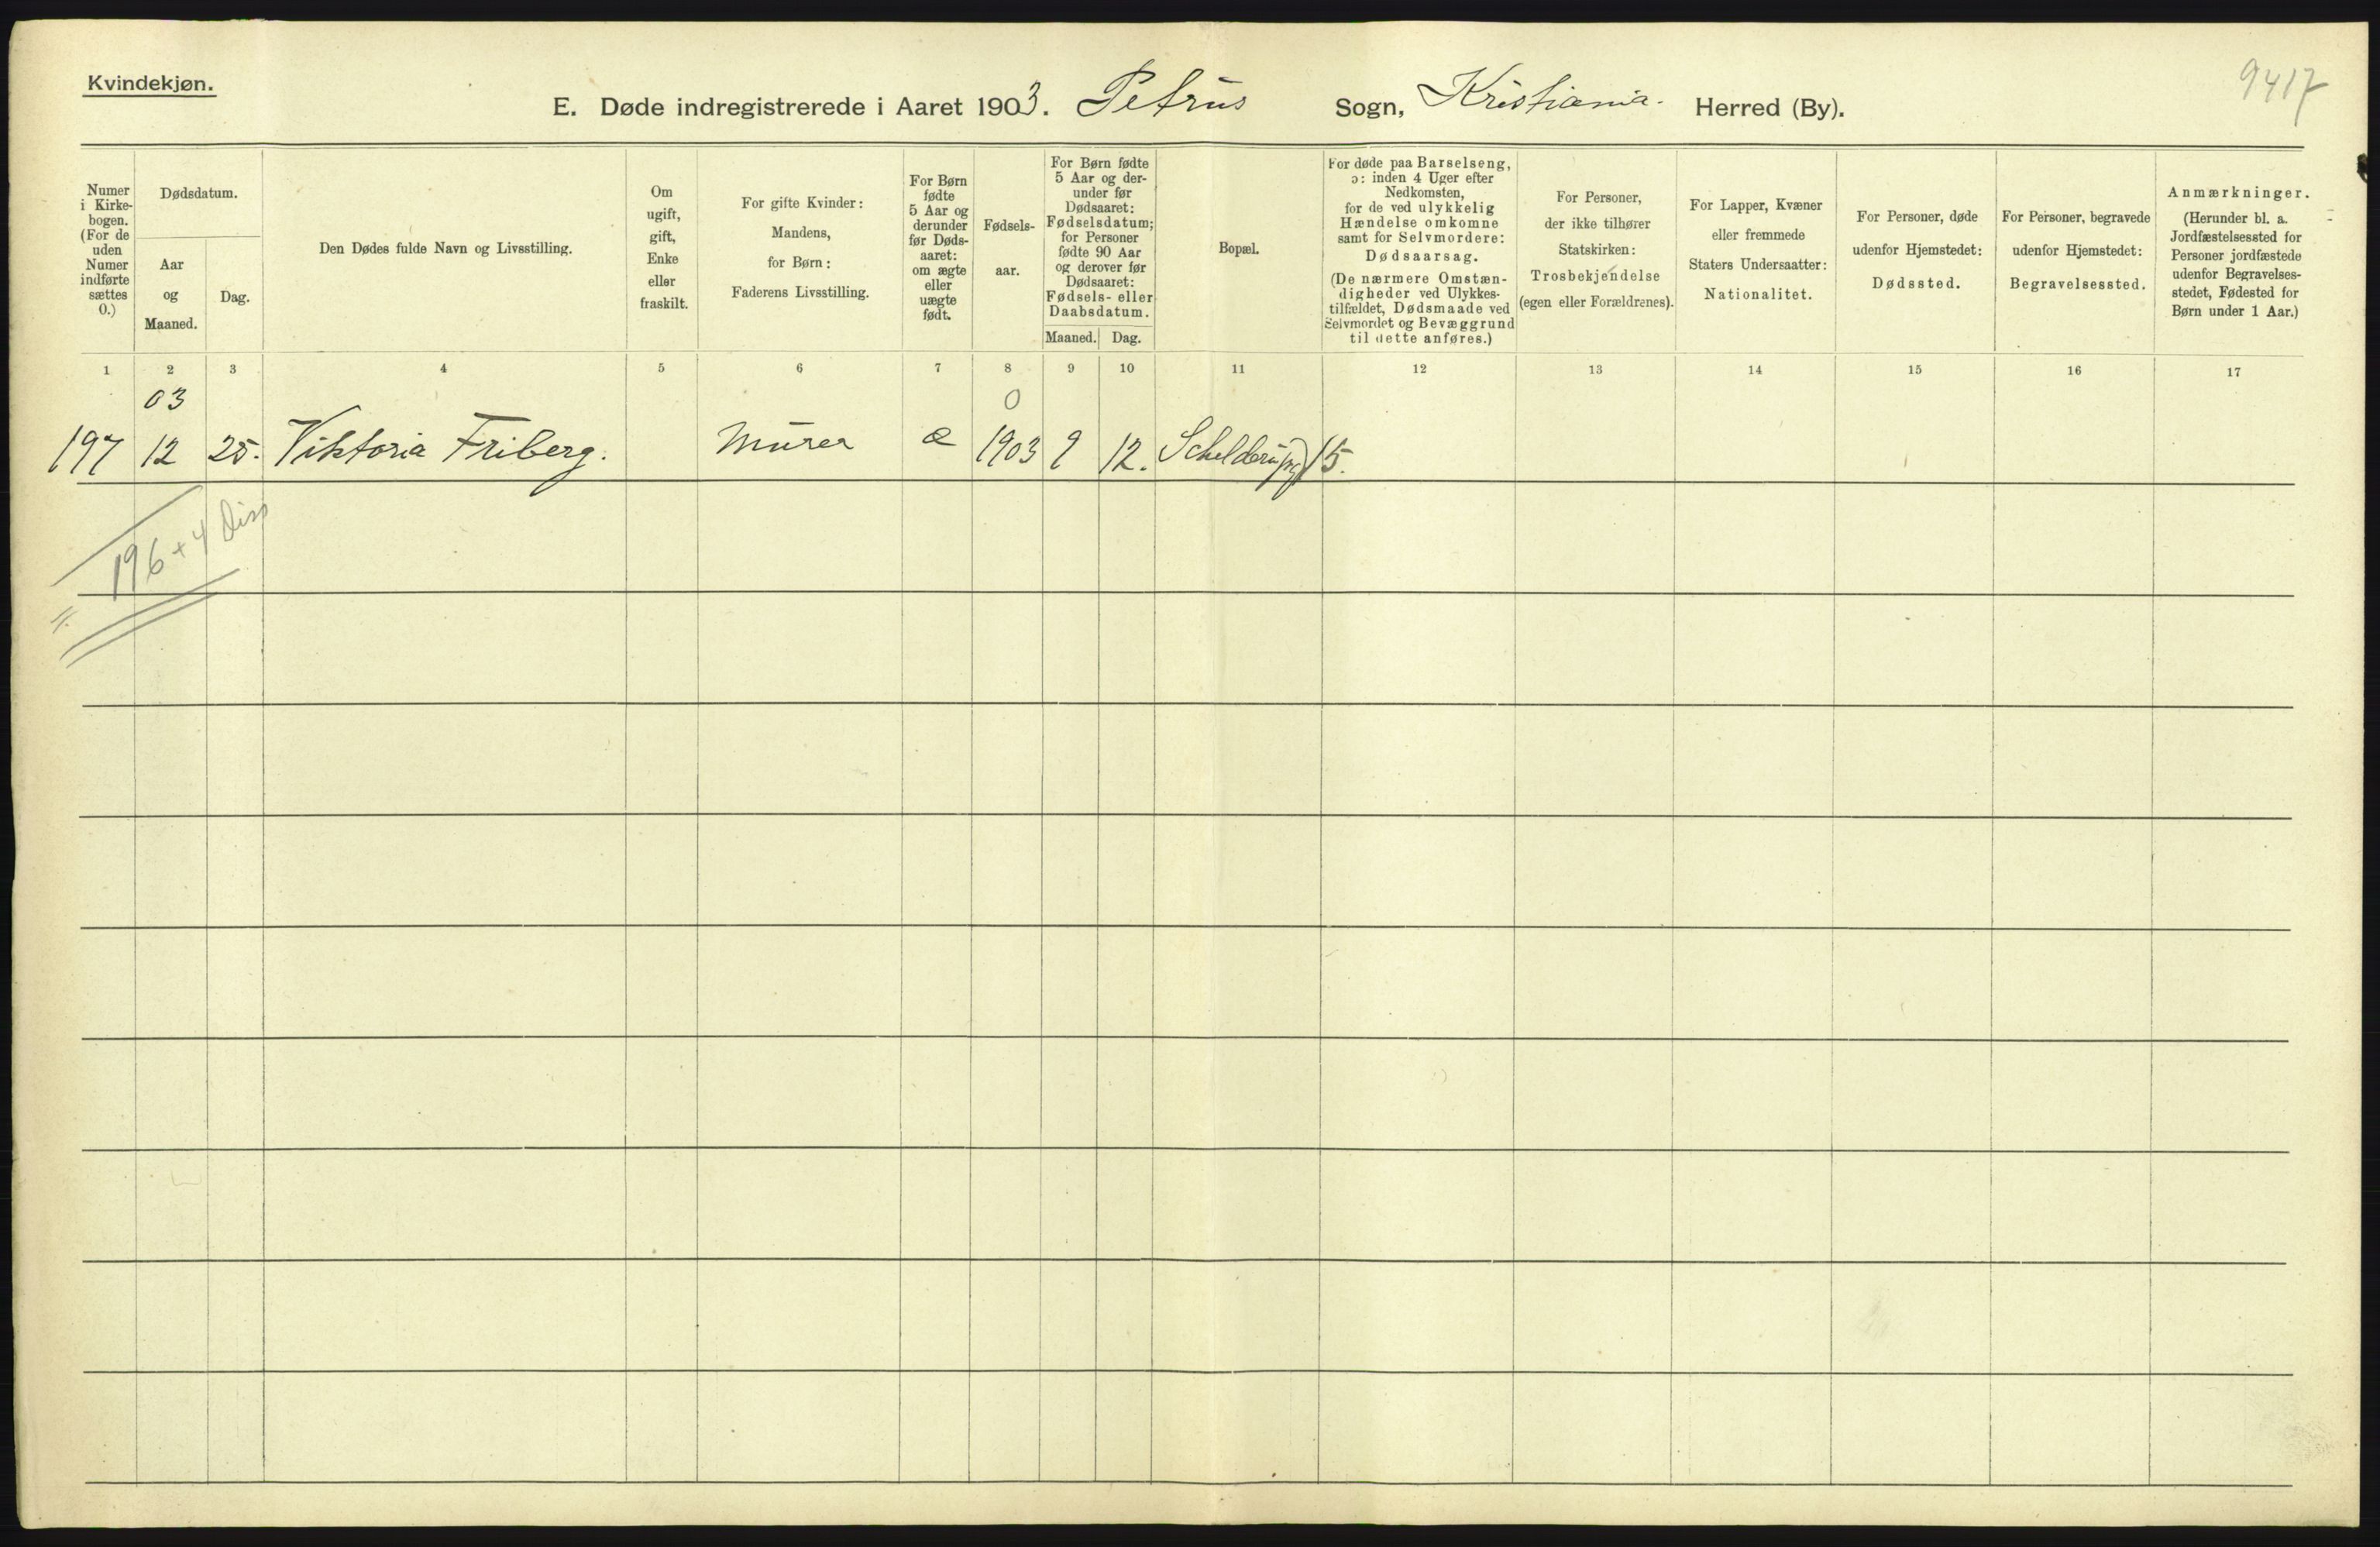 Kvindekjøn.
9417
E. Døde indregistrerede i Aaret 1903. Petrus Sogn, Kristiania. Herred (By).
Numer
i Kirke-
bogen.
(For de
uden
Numer
indførte
sættes
0.)
Dødsdatum.
Aar
og
Maaned.
Dag.
Den Dødes fulde Navn og Livsstilling.
Om
ugift,
gift,
Enke
eller
fraskilt.
For gifte Kvinder:
Mandens,
for Børn:
Faderens Livsstilling.
For Børn
fødte
5 Aar og
derunder
før Døds-
aaret:
om ægte
eller
uægte
født.
Fødsels-
aar.
For Børn fødte
5 Aar og der-
under før
Dødsaaret:
Fødselsdatum;
for Personer
fødte 90 Aar
og derover før
Dødsaaret:
Fødsels- eller
Daabsdatum.
Maaned. Dag.
Bopæl.
For døde paa Barselseng,
ɔ: inden 4 Uger efter
Nedkomsten,
for de ved ulykkelig
Hændelse omkomne
samt for Selvmordere:
Dødsaarsag.
(De nærmere Omstæn-
digheder ved Ulykkes-
tilfældet, Dødsmaade ved
Selvmordet og Bevæggrund
til dette anføres.)
For Personer,
der ikke tilhører
Statskirken:
Trosbekjendelse
(egen eller Forældrenes).
For Lapper, Kvæner
eller fremmede
Staters Undersaatter:
Nationalitet.
For Personer, døde
udenfor Hjemstedet:
Dødssted.
For Personer, begravede
udenfor Hjemstedet:
Begravelsessted.
Anmærkninger.
(Herunder bl. a.
Jordfæstelsessted for
Personer jordfæstede
udenfor Begravelses-
stedet, Fødested for
Børn under 1 Aar.)
1 2 3 4 5 6 7 8 9 10 11 12 13 14 15 16 17
03 0
197 12 25. Viktoria Friberg. Murer æ 1903 9 12. Schelderupsg 15.
196 + 4 Diss